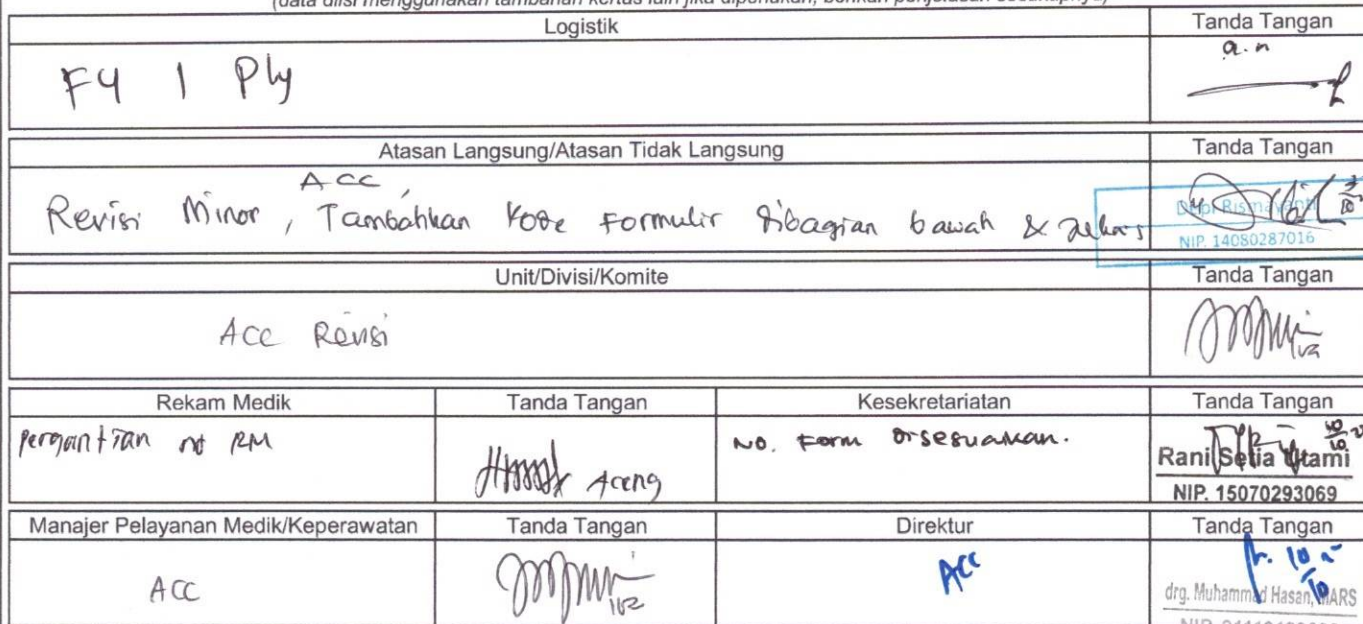 (data diisi menggunakan tambahan kertas lain jika diperlukan, berikan penjelasan secukupnya)
Logistik
Tanda Tangan
F4 1 Ply
a.n
Atasan Langsung/Atasan Tidak Langsung
Tanda Tangan
ACC
Revisi Minor, Tambahkan Kode Formulir dibagian bawah &
NIP. 14080287016
Unit/Divisi/Komite
Tanda Tangan
Acc Revisi
Rekam Medik
Tanda Tangan
Kesekretariatan
Tanda Tangan
pergantian no RM
Aceng
No. Form disesuaikan.
Rani Setia Utami
NIP. 15070293069
Manajer Pelayanan Medik/Keperawatan
Tanda Tangan
Direktur
Tanda Tangan
ACC
ACC
drg. Muhammad Hasan, MARS